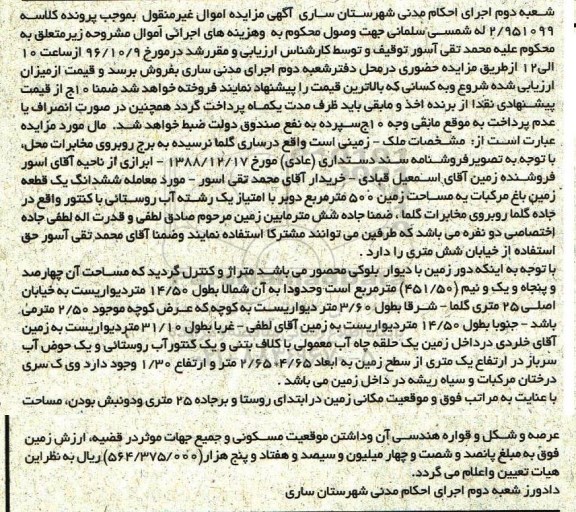 شعبه دوم اجرای احکام مدنی شهرستان ساری آگهی مزایده اموال غیرمنقول بموجب پرونده کلاسه
۲/۹۵۱۰۹۹ له شمسی سلمانی جهت وصول محکوم به وهزینه های اجرائی اموال مشروحه زیرمتعلق به
محکوم علیه محمد تقی آسور توقیف و توسط کارشناس ارزیابی و مقرر شد درمورخ ۹۶/۱۰/۹ ازساعت ۱۰
الی ۱۲ ازطریق مزایده حضوری درمحل دفترشعبه دوم اجرای مدنی ساری بفروش برسد و قیمت ازمیزان
ارزیابی شده شروع وبه کسانی که بالاترین قیمت را پیشنهاد نمایند فروخته خواهد شد ضمنا ۱۰ج از قیمت
پیشنهادی نقدا از برنده اخذ و مابقی باید ظرف مدت یکماه پرداخت گردد همچنین در صورت انصراف یا
عدم پرداخت به موقع مابقی وجه ۱۰جسپرده به نفع صندوق دولت ضبط خواهد شد. مال مورد مزایده
عبارت است از: مشخصات ملک - زمینی است واقع درساری گلما نرسیده به برج روبروی مخابرات محل،
با توجه به تصویرفروشنامه سند دستداری (عادی) مورخ ۱۳۸۸/۱۲/۱۷ - ابرازی از ناحیه آقای اسور
فروشنده زمین آقای اسمعیل قبادی - خریدار آقای محمد تقی اسور - مورد معامله ششدانگ یک قطعه
زمین باغ مرکبات به مساحت زمین ۵۰۰ مترمربع دوبر با امتیاز یک رشته آب روستائی با کنتور واقع در
جاده گلما روبروی مخابرات گلما ، ضمنا جاده شش مترمابین زمین مرحوم صادق لطفی و قدرت اله لطفی جاده
اختصاصی دو نفره می باشد که طرفین می توانند مشترکا استفاده نمایند وضمنا آقای محمد تقی آسور حق
استفاده از خیابان شش متری را دارد .
با توجه به اینکه دور زمین با دیوار بلوکی محصور می باشد متراژ و کنترل گردید که مساحت آن چهارصد
و پنجاه و یک و نیم (۴۵۱/۵۰) مترمربع است وحدودا به آن شمالا بطول ۱۴/۵۰ متردیواریست به خیابان
اصلی ۲۵ متری گلما - شرقا بطول ۳/۶۰ متر دیواریست به کوچه که عرض کوچه موجود ۲/۵۰ مترمی
باشد - جنوبا بطول ۱۴/۵۰ متردیواریست به زمین آقای لطفی - غربا بطول ۳۱/۱۰ متردیواریست به زمین
آقای خلردی درداخل زمین یک حلقه چاه آب معمولی با کلاف بتنی و یک کنتورآب روستائی و یک حوض آب
سرباز در ارتفاع یک متری از سطح زمین به ابعاد ۲/۶۵.۴/۶۵ متر و ارتفاع ۱/۳۰ وجود دارد وی ک سری
درختان مرکبات و سیاه ریشه در داخل زمین می باشد .
با عنایت به مراتب فوق و موقعیت مکانی زمین درابتدای روستا و برجاده ۲۵ متری ودونبش بودن، مساحت
عرصه و شکل و قواره هندسی آن وداشتن موقعیت مسکونی و جمیع جهات موثردر قضیه، ارزش زمین
فوق به مبلغ پانصد و شصت و چهار میلیون و سیصد و هفتاد و پنج هزار(۵۶۴/۳۷۵/۰۰۰) ریال به نظر این
هیات تعیین واعلام می گردد.
دادورز شعبه دوم اجرای احکام مدنی شهرستان ساری